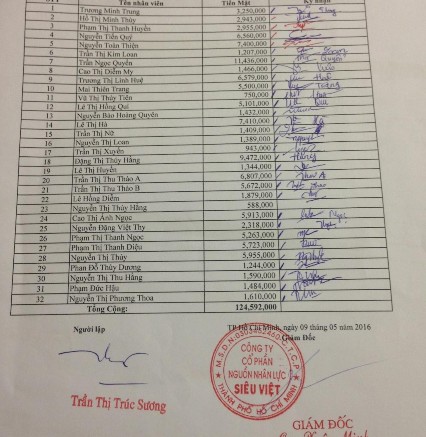 Tên nhân viên Tiền Mặt Ký nhận
1 Trương Minh Trung 3,250,000
2 Hồ Thị Minh Thúy 2,943,000
3 Phạm Thị Thanh Huyền 2,955,000
4 Nguyễn Tiến Quý 6,560,000
5 Nguyễn Toàn Thiện 7,400,000
6 Trần Thị Kim Loan 1,207,000
7 Trần Ngọc Quyên 11,436,000
8 Cao Thị Diễm My 1,466,000
9 Trương Thị Linh Huệ 6,579,000
10 Mai Thiên Trang 5,500,000
11 Vũ Thị Thủy Tiên 750,000
12 Lê Thị Hồng Quí 5,101,000
13 Nguyễn Bảo Hoàng Quyên 1,432,000
14 Lê Thị Hà 7,410,000
15 Trần Thị Nữ 1,409,000
16 Nguyễn Thị Loan 1,389,000
17 Trần Thị Xuyến 943,000
18 Đặng Thị Thúy Hằng 9,472,000
19 Lê Thị Huyền 1,344,000
20 Trần Thị Thu Thảo A 6,807,000
21 Trần Thị Thu Thảo B 5,672,000
22 Lê Hồng Diễm 1,879,000
23 Nguyễn Thị Thúy Hằng 588,000
24 Cao Thị Ánh Ngọc 5,913,000
25 Nguyễn Đặng Việt Thy 2,318,000
26 Phạm Thị Thanh Ngọc 5,263,000
27 Phạm Thị Thanh Diệu 5,723,000
28 Nguyễn Thị Thúy 5,955,000
29 Phan Đỗ Thùy Dương 1,244,000
30 Nguyễn Thị Thu Hằng 1,590,000
31 Phạm Đức Hậu 1,484,000
32 Nguyễn Thị Phương Thoa 1,610,000
Tổng Cộng: 124,592,000
TP Hồ Chí Minh, ngày 09 tháng 05 năm 2016
Người lập Giám Đốc
CÔNG TY
CỔ PHẦN
NGUỒN NHÂN LỰC
SIÊU VIỆT
THÀNH PHỐ HỒ CHÍ MINH
Trần Thị Trúc Sương
GIÁM ĐỐC